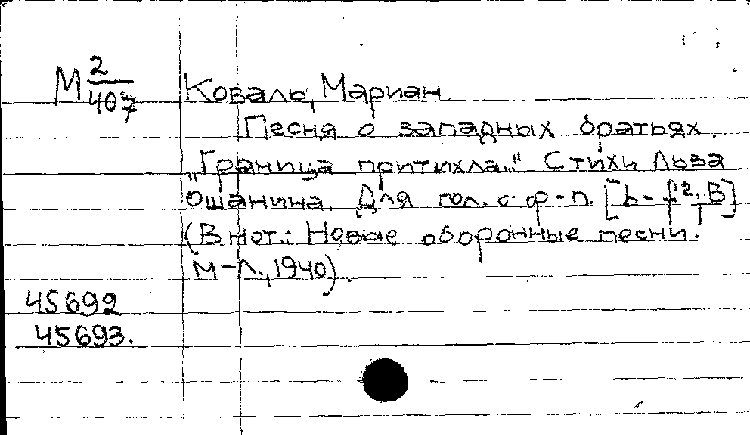 М 2/407 Коваль, Мариан.
Песня о западных братьях.
„Граница притихла..." Стихи Льва
Ошанина. Для гол. с ф-п. [h-f², B]
т
(В нот.: Новые оборонные песни.
М-Л., 1940).
45692
45693.